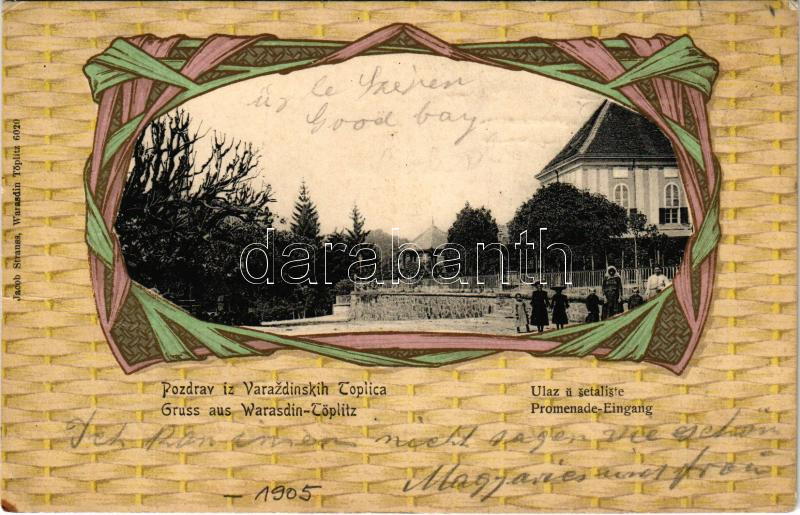 Jacob Strauss, Warasdin Töplitz 6020
le Szenen
Good bay
darabanth
Pozdrav iz Varaždinskih Toplica
Gruss aus Warasdin-Töplitz
Ulaz ü šetalište
Promenade-Eingang
Ich kan inen nicht sagen wie schön
Magyaries
- 1905